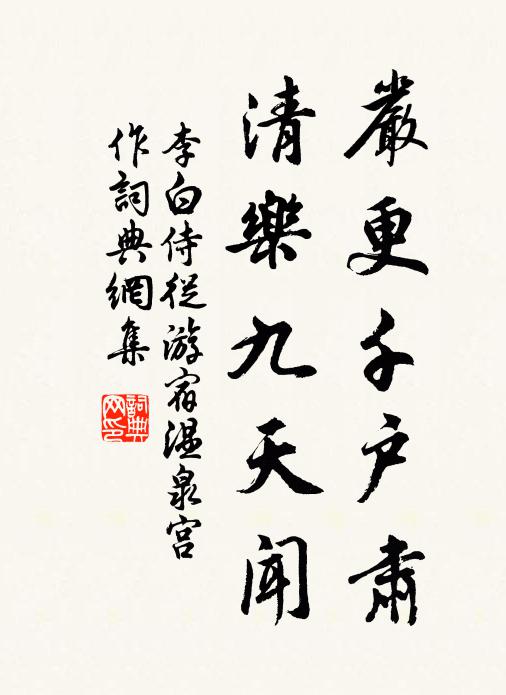 嚴更千户肅
清樂九天聞
李白侍從游宿温泉宫
作詞典網集
詞典
网印